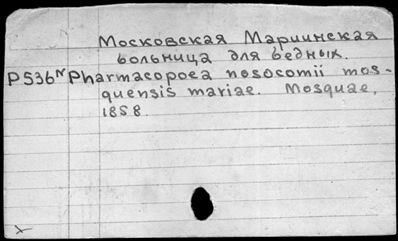 Московская Мариинская
больница для бедных.
P536ᴺ Pharmacopoea nosocomii mos-
quensis mariae. Mosquae,
1858.